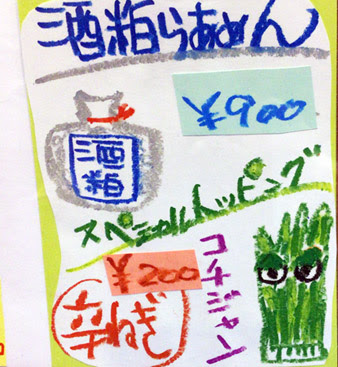 酒粕らあめん
¥900
酒粕
スペシャルトッピング
¥200
コチジャン
辛ねぎ